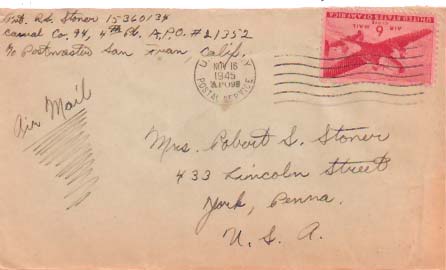 Pvt. R.S. Stoner 15360134
Casual Co. 94, 4th Plt., A.P.O. #21352
c/o Postmaster San Fran, Calif.
U.S. ARMY
NOV 16
1945
POSTAL SERVICE
UNITED STATES OF AMERICA
AIR MAIL
6
CENTS
Air Mail
Mrs. Robert S. Stoner
433 Lincoln Street
York, Penna.
U. S. A.